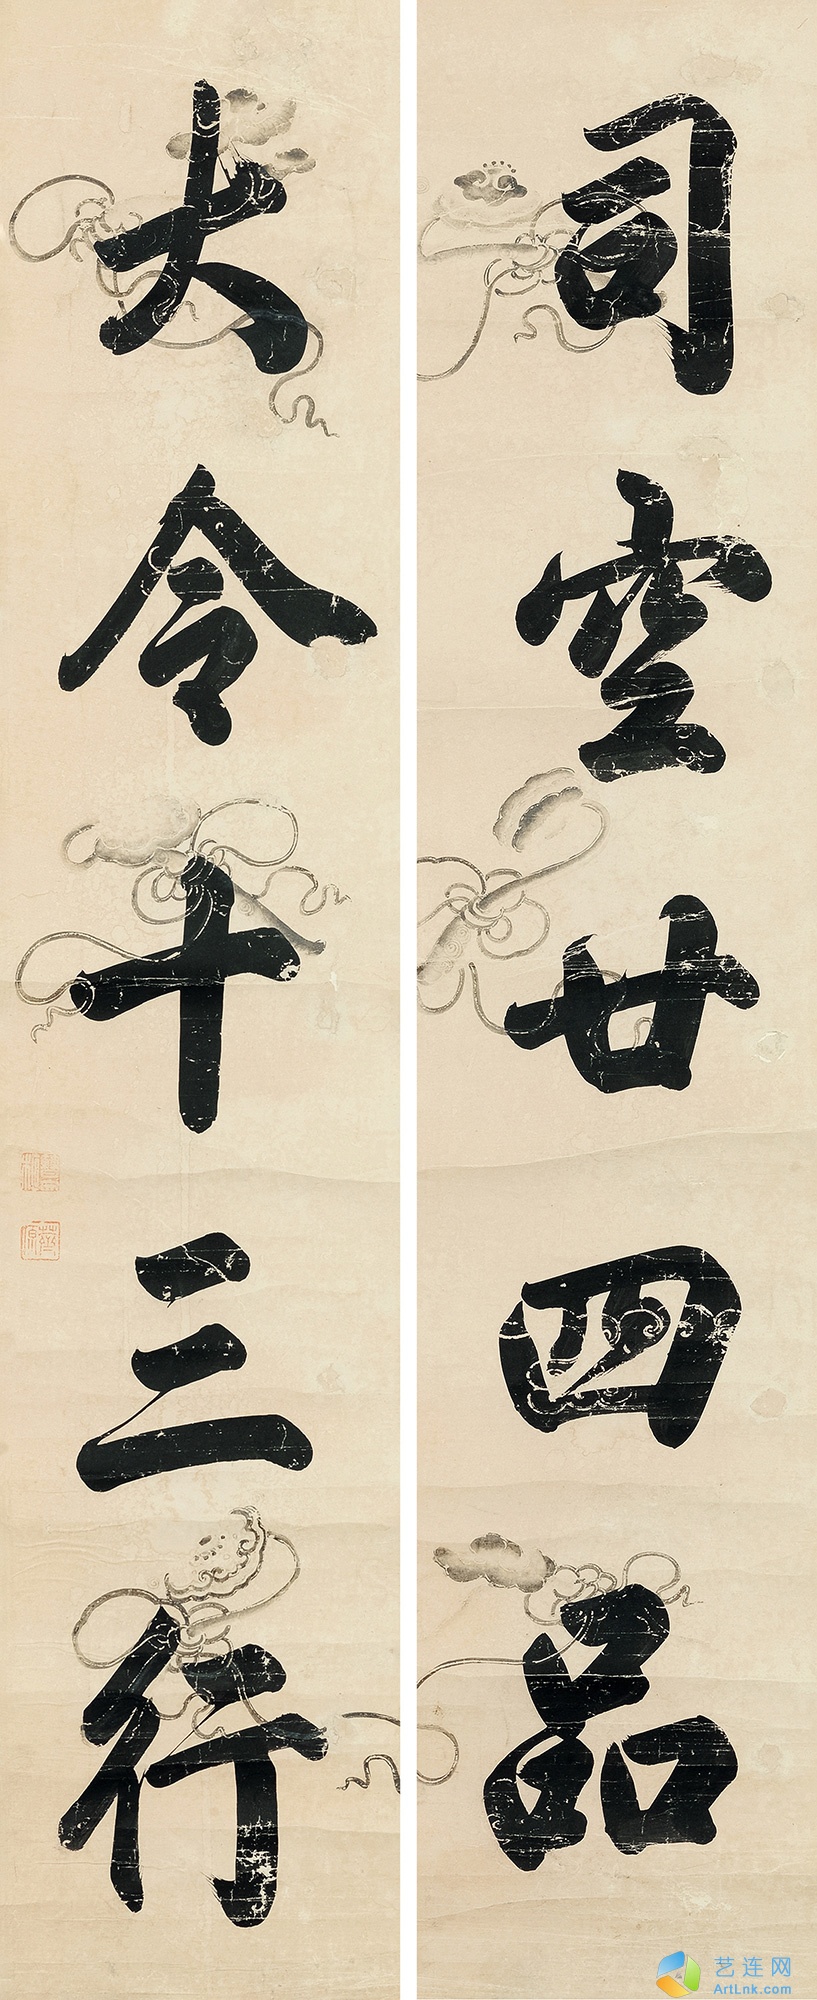 司空廿四品
大令十三行
艺连网
ArtLnk.com